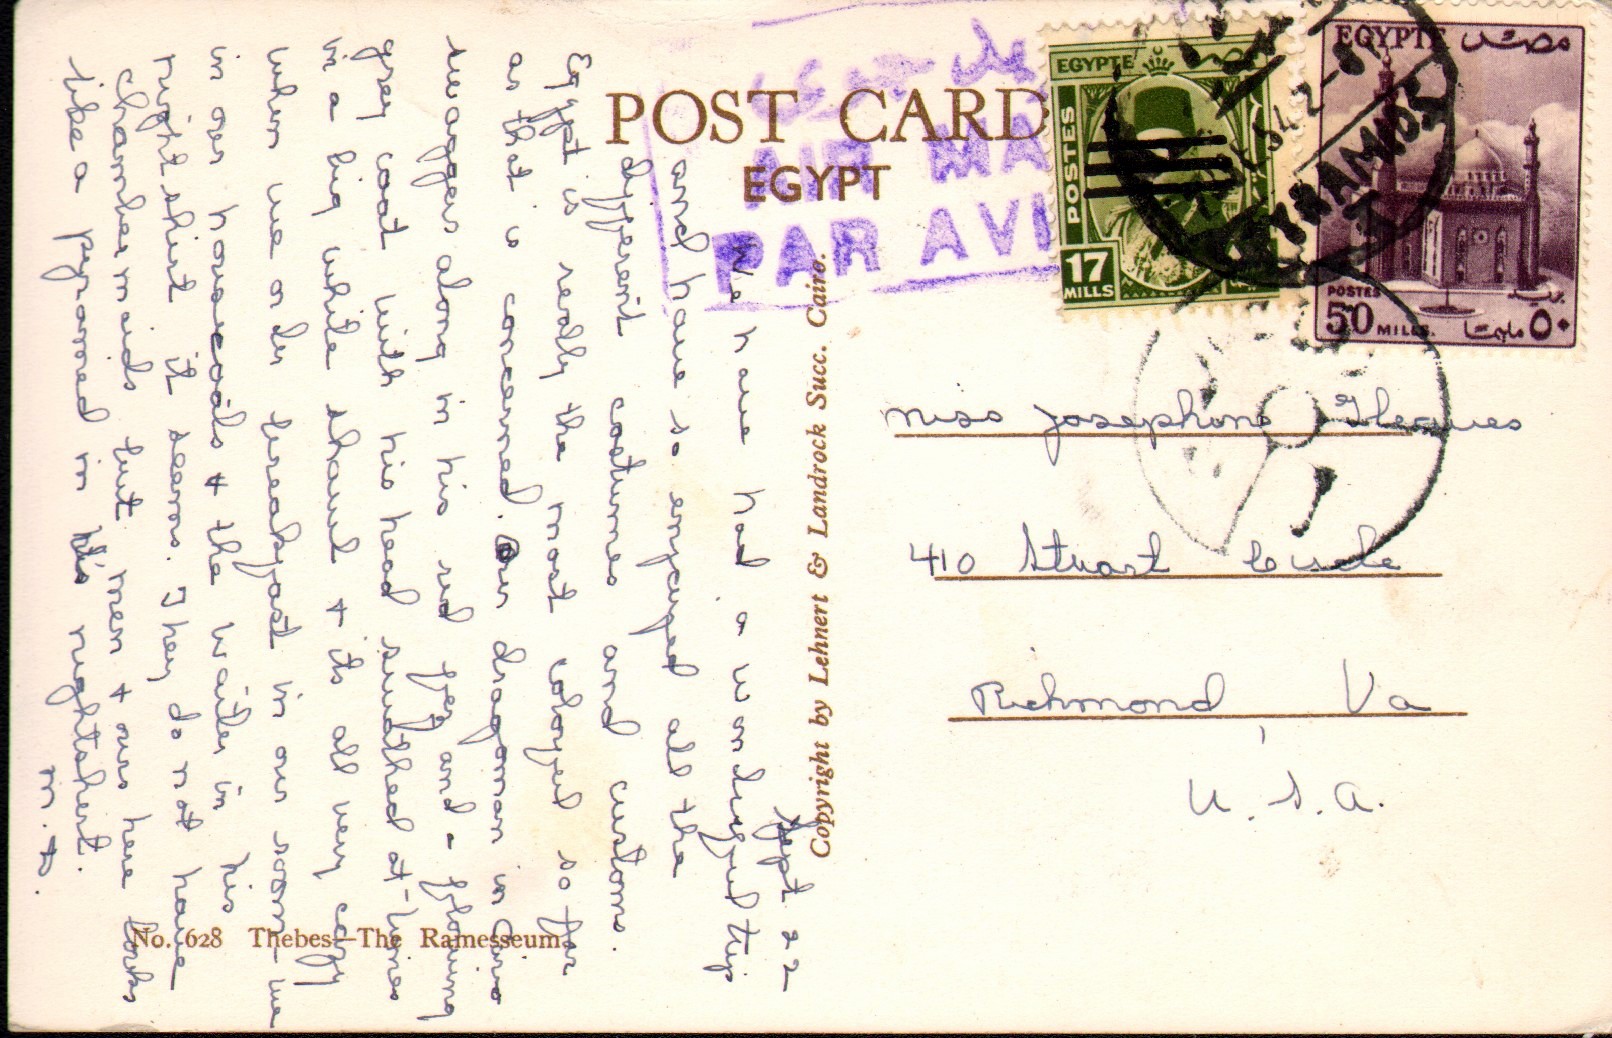 POST CARD
EGYPT
AIR MA
PAR AVI
EGYPTE
POSTES
17
MILLS
EGYPTE
مصر
POSTES
50 MILLS.
بريد
٥٠ مليما
PYRAMIDS
54 2-8
Sept 22
We have had a wonderful trip
and have so enjoyed all the
different costumes and customs.
Egypt is really the most colorful so far
as that is concerned. Our dragoman in Cairo
swaggers along in his red fez and a flowing
grey coat with his head swathed at times
in a big white shawl + its all very cozy
when we order breakfast in our room - we
in our housecoats + the waiter in his
nightshirt it seems. They do not have
chambermaids but men + ours here looks
like a pyramid in his nightshirt.
Miss Josephine Gleaves
410 Stuart Circle
Richmond, Va
U.S.A.
No. 628 Thebes—The Ramesseum.
Copyright by Lehnert & Landrock Succ. Cairo.